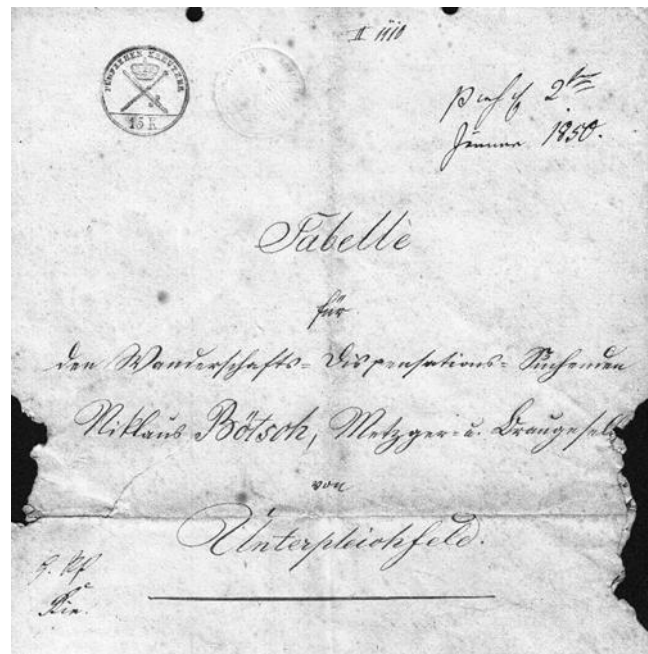 FÜNFZEHEN KREUTZER
15 K
II
2ten
Januar 1850.
Tabelle
für
den Wanderschafts= Dispensations= Suchenden
Niklaus Bötsch, Metzger- u. Braugesell
von
Unterpleichfeld.